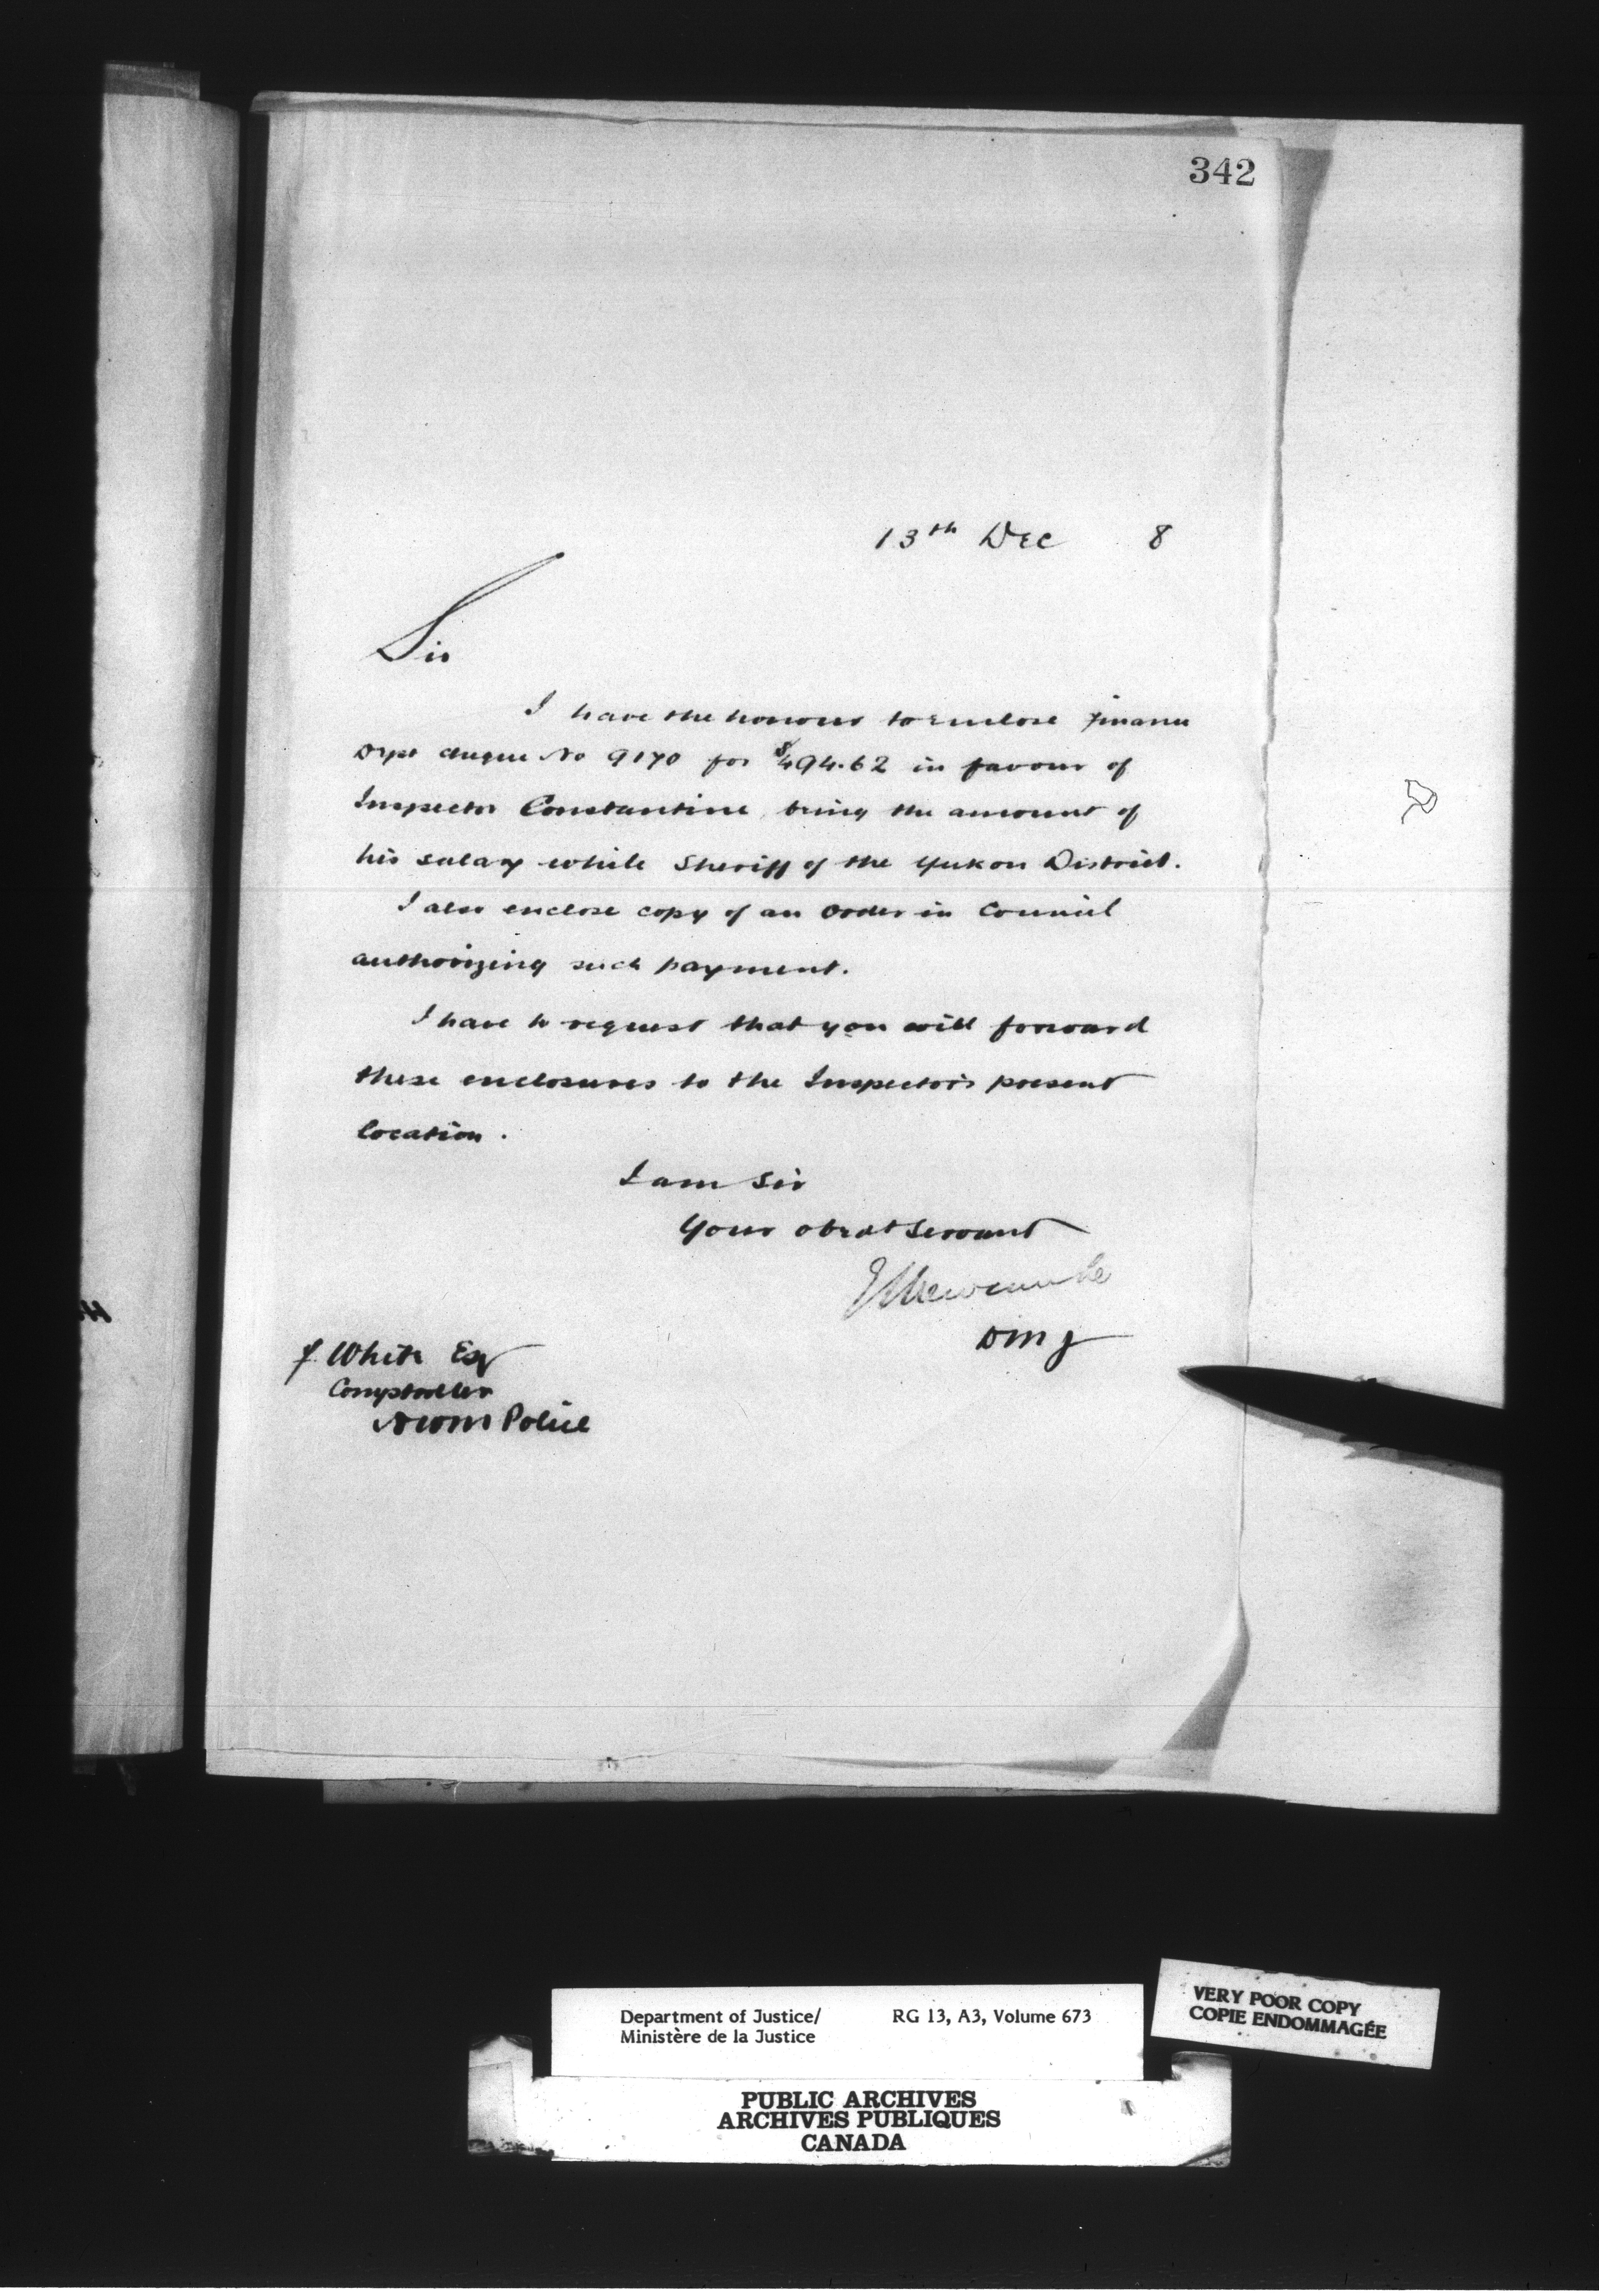 342
13th Dec 8
Sir
I have the honour to enclose Finance
Dept cheque No 9170 for $494.62 in favour of
Inspector Constantine, being the amount of
his salary while Sheriff of the Yukon District.
I also enclose copy of an Order in Council
authorizing such payment.
I have to request that you will forward
these enclosures to the Inspector's present
location.
I am Sir
Your obedt Servant
E L Newcombe
DMJ
F. White Esq
Comptroller
NWM Police
Department of Justice/ RG 13, A3, Volume 673
Ministère de la Justice
VERY POOR COPY
COPIE ENDOMMAGÉE
PUBLIC ARCHIVES
ARCHIVES PUBLIQUES
CANADA